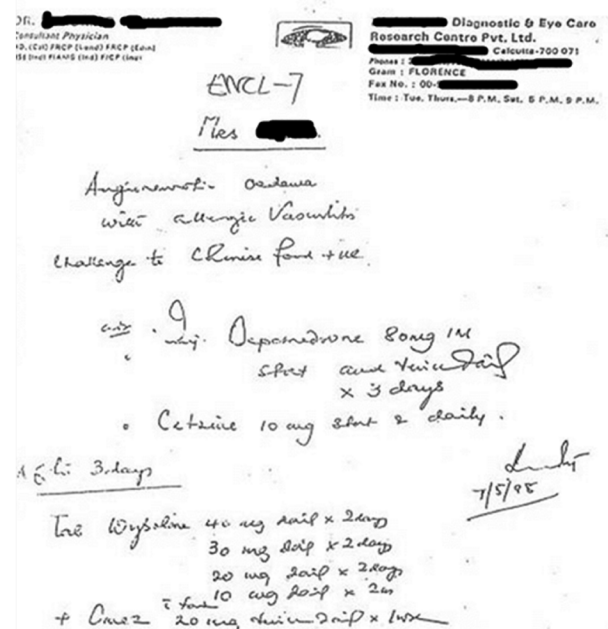 DR.
Consultant Physician
D. (Cal) FRCP (Lond) FRCP (Edin)
FIAMS (Ind) FICP (Ind)
Diagnostic & Eye Care
Research Centre Pvt. Ltd.
Calcutta-700 071
Phones :
Gram : FLORENCE
Fax No. : 00-
Time : Tue, Thurs,—8 P.M. Sat. 5 P.M. 9 P.M.
ENCL-7
Mrs
Angioneurotic Oedema
with allergic Vasculitis
Challenge to Chinese food +ve
Inj. Depomedrone 80mg IM
stat and twice daily
x 3 days
Cetzine 10 mg stat & daily.
3 days
7/5/98
Tab Wysolone 40 mg daily x 2 days
30 mg daily x 2 days
20 mg daily x 2 days
10 mg daily x
+ 20 mg twice daily x